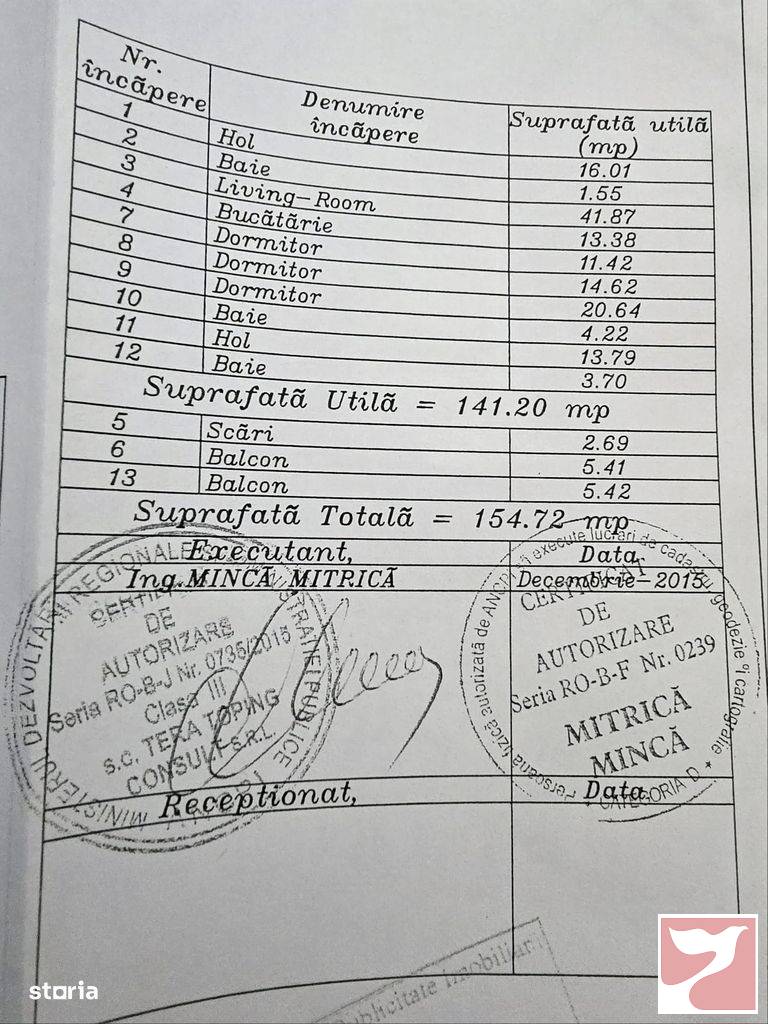 Nr. încãpere Denumire încãpere Suprafatã utilã (mp)
1 Hol 16.01
2 Baie 1.55
3 Living-Room 41.87
4 Bucãtãrie 13.38
7 Dormitor 11.42
8 Dormitor 14.62
9 Dormitor 20.64
10 Baie 4.22
11 Hol 13.79
12 Baie 3.70
Suprafatã Utilã = 141.20 mp
5 Scãri 2.69
6 Balcon 5.41
13 Balcon 5.42
Suprafatã Totalã = 154.72 mp
Executant, Data,
Ing.MINCÃ MITRICÃ Decembrie-2015
MINISTERUL DEZVOLTARII REGIONALE PUBLICE
CERTIFICAT
DE
AUTORIZARE
Seria RO-B-J Nr. 0735/2015
Clasa III
s.c. TERA TOPING
CONSULT S.R.L.
Persoana fizică autorizată de ANCPI să execute lucrari de cadastru, geodezie și cartografie
CERTIFICAT
DE
AUTORIZARE
Seria RO-B-F Nr. 0239
MITRICĂ
MINCĂ
* CATEGORIA D *
Receptionat, Data,
Publicitate Imobiliară
storia